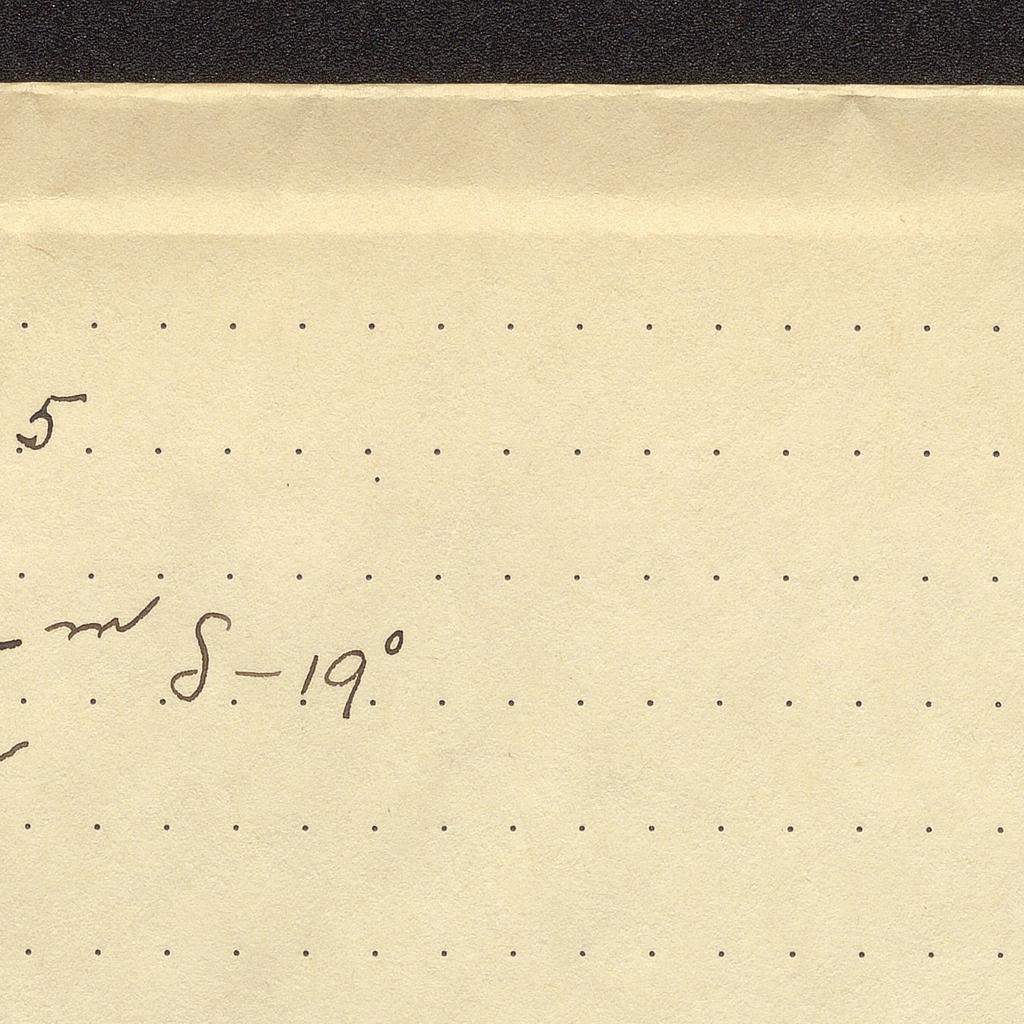 5
m δ -19°